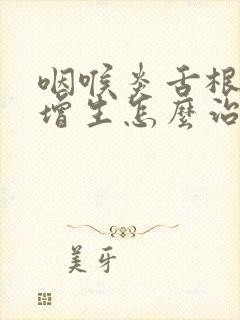 咽喉炎舌根
增生怎麼治
美牙